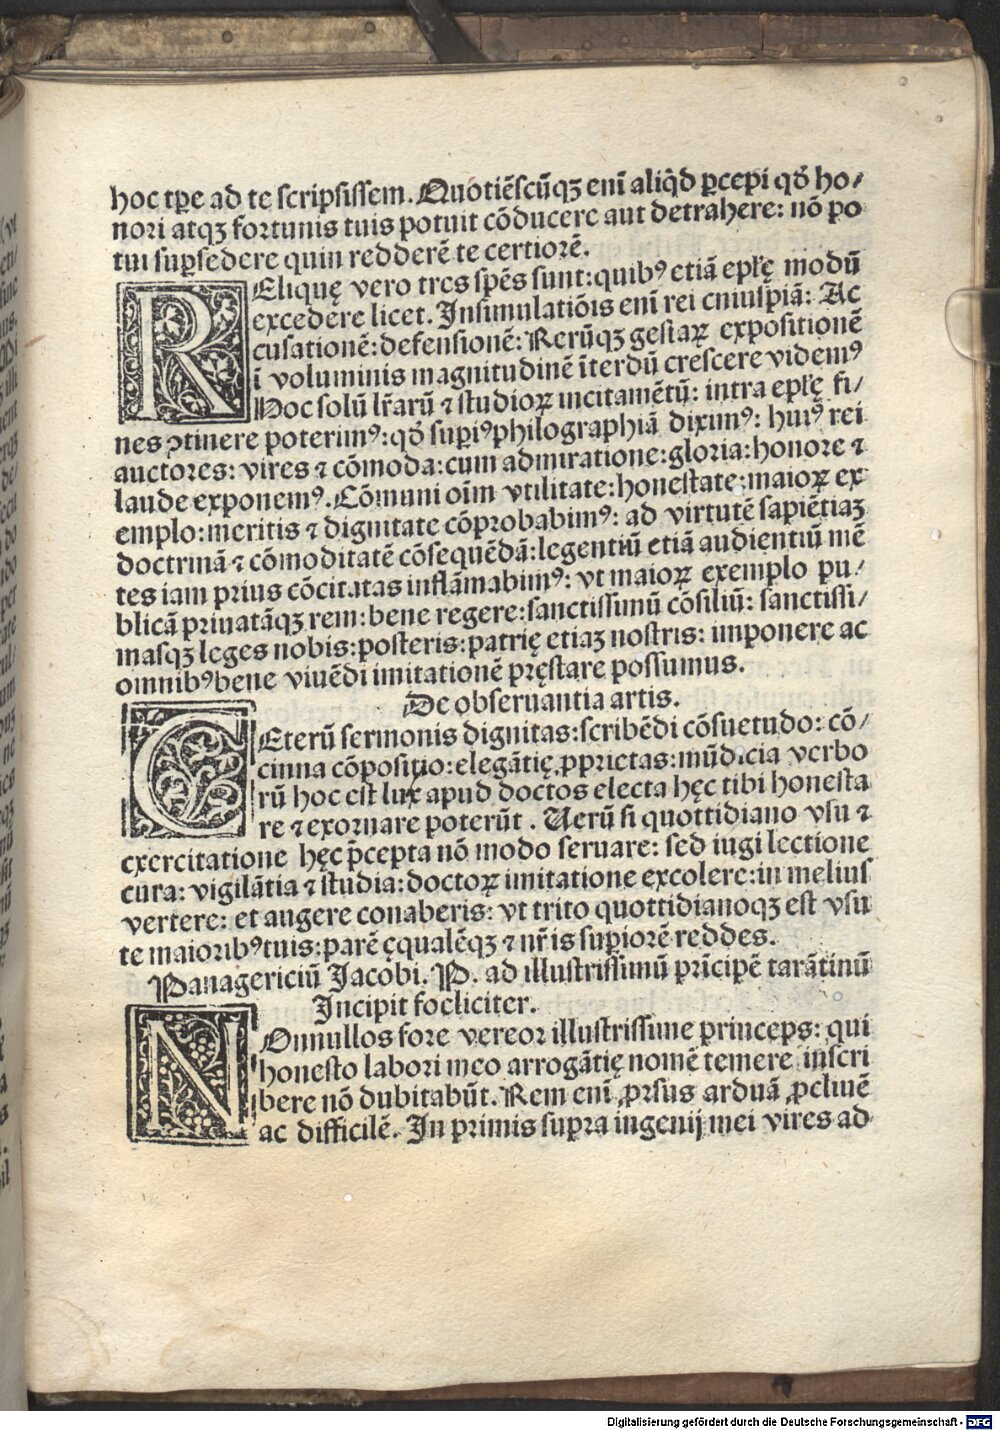 hoc tp̄e ad te scripsissem. Quotiēscūqꝫ enī aliq̄d ꝑcepi qd̄ ho⸗
nori atqꝫ fortunis tuis potuit cōducere aut detrahere: nō po
tui suꝑsedere quin redderē te certiorē.
REliquę vero tres spēs sunt: quibꝰ etiā epłę modū
excedere licet. Insimulatiōis enī rei cuiusp̄iā: Ac
cusationē: defensionē: Rerūqꝫ gestaꝝ expositionē
ī voluminis magnitudinē īterdū crescere videmꝰ
Hoc solū lr̄arū ⁊ studioꝝ incitamētū: intra epłę fi⸗
nes ꝯtinere poterimꝰ: qd̄ suꝑiꝰ philographiā diximꝰ: huiꝰ rei
auctores: vires ⁊ cōmoda: cum admiratione: gloria: honore ⁊
laude exponemꝰ. Cōmuni oīm vtilitate: honestate: maioꝝ ex
emplo: meritis ⁊ dignitate cōprobabimꝰ: ad virtutē sapiētiaꝫ
doctrinā ⁊ cōmoditatē cōsequēdā: legentiū etiā audientiū mē
tes iam prius cōcitatas inflāmabimꝰ: vt maioꝝ exemplo pu⸗
blicā priuatāqꝫ rem: bene regere: sanctissimū cōsiliū: sanctissi⸗
masqꝫ leges nobis: posteris: patrię etiaꝫ nostris: imponere ac
omnibꝰ bene viuēdi imitationē pręstare possumus.
De obseruantia artis.
CEterū sermonis dignitas: scribēdi cōsuetudo: cō⸗
cinna cōpositio: elegātię ꝓprietas: mūdicia verbo
rū hoc est lux apud doctos electa hęc tibi honesta
re ⁊ exornare poterūt. Uerū si quottidiano vsu ⁊
exercitatione hęc p̄cepta nō modo seruare: sed iugi lectione
cura: vigilātia ⁊ studia: doctoꝝ imitatione excolere: in melius
vertere: et augere conaberis: vt trito quottidianoqꝫ est vsu
te maioribꝰ tuis: parē ęqualēqꝫ ⁊ nr̄is suꝑiorē reddes.
Panagericiū Jacobi. P. ad illustrissimū prīcipē tarātinū
Incipit foeliciter.
NOnnullos fore vereor illustrissime princeps: qui
honesto labori meo arrogātię nomē temere inscri
bere nō dubitabūt. Rem enī ꝓrsus arduā ꝓcliuē
ac difficilē. In primis supra ingenij mei vires ad
Digitalisierung gefördert durch die Deutsche Forschungsgemeinschaft - DFG